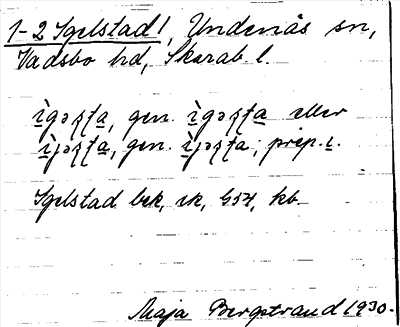 1-2 Igelstad 1, Undenäs sn,
Vadsbo hd, Skarab. l.
ìgəʂʈa, gen. ìgəʂʈa eller
ìjəʂʈa, gen. ìjəʂʈa; prep. i.
Igelstad bek, ek, G54, kb.
Maja Bergstrand 1930.